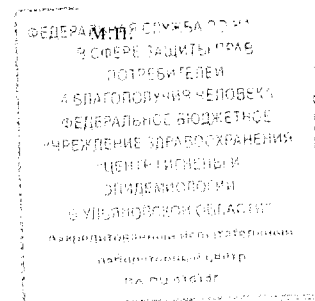 М.П.
ФЕДЕРАЛЬНАЯ СЛУЖБА ПО
В СФЕРЕ ЗАЩИТЫ ПРАВ
ПОТРЕБИТЕЛЕЙ
И БЛАГОПОЛУЧИЯ ЧЕЛОВЕКА
ФЕДЕРАЛЬНОЕ БЮДЖЕТНОЕ
УЧРЕЖДЕНИЕ ЗДРАВООХРАНЕНИЯ
"ЦЕНТР ГИГИЕНЫ И
ЭПИДЕМИОЛОГИИ
В УЛЬЯНОВСКОЙ ОБЛАСТИ"
Аккредитованный испытательный
лабораторный центр